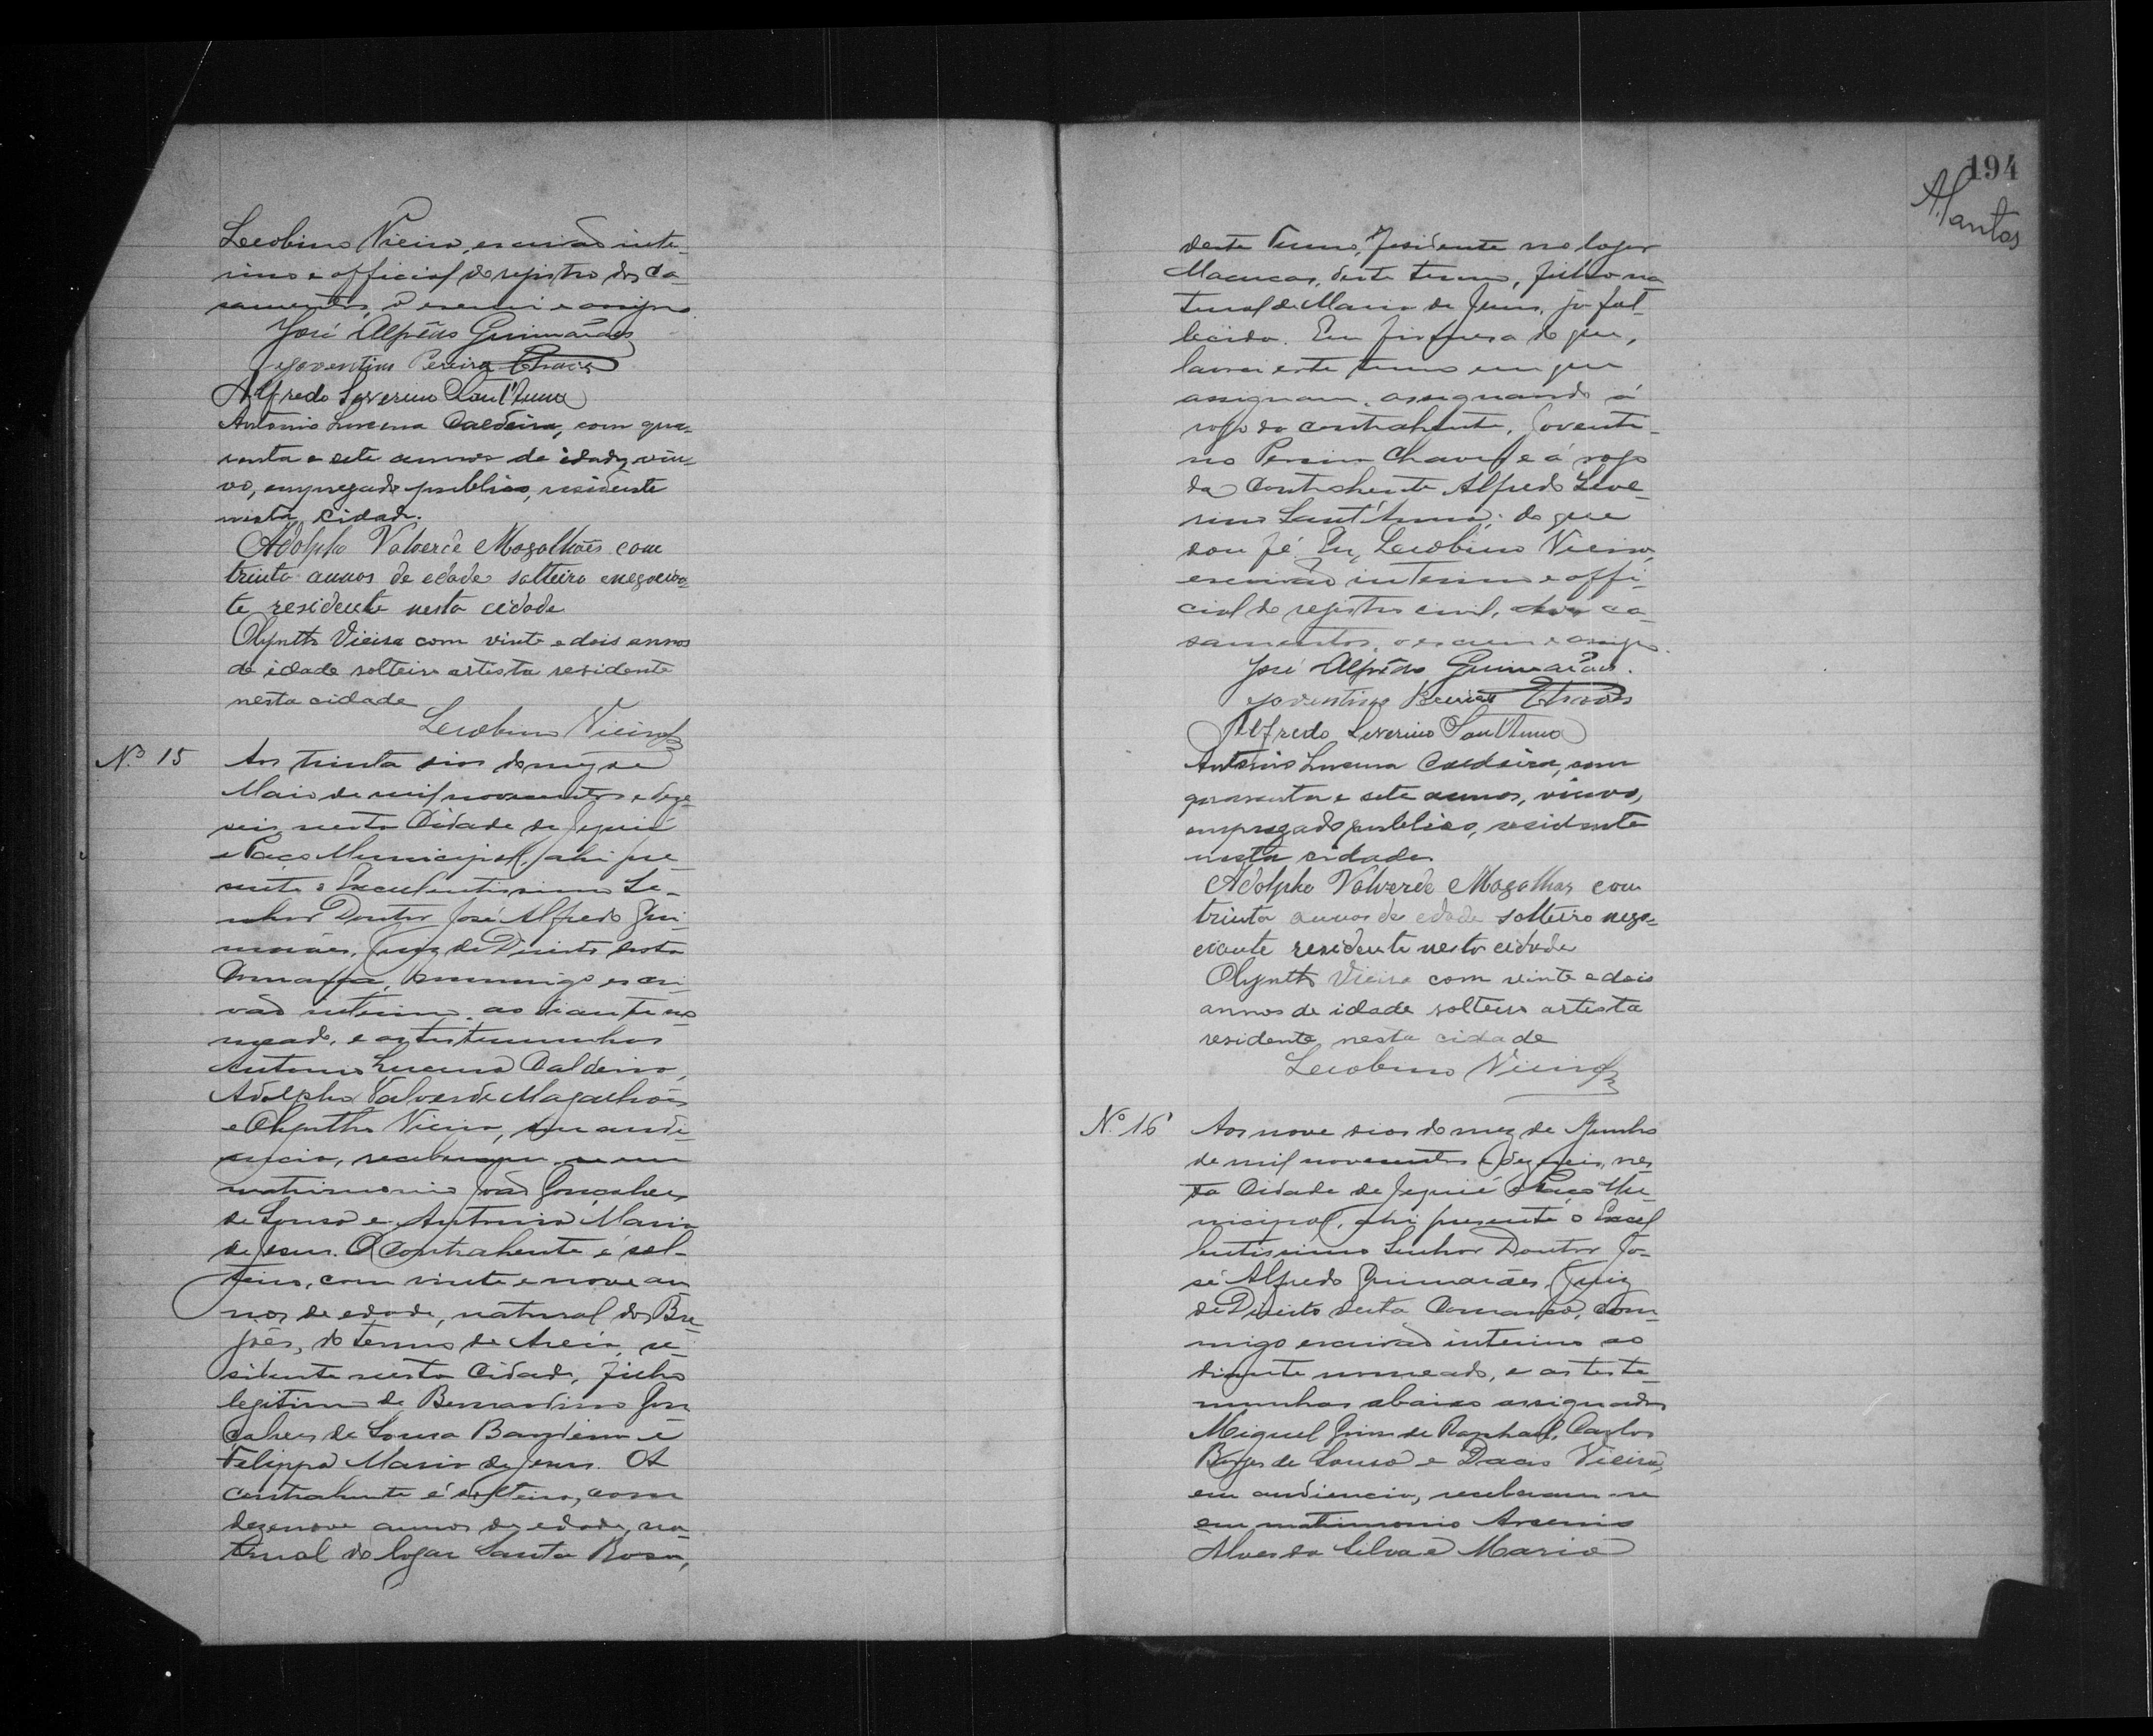 Lecobino Vieira, escrivão inte-
rino e official do registro dos ca-
samentos, o escrevi e assigno
José Alfrêdo Guimarães
Joventino Pereira Chaves
Alfredo Severino Sant'Anna
Antonio Lucena Caldeira, com qua-
renta e sete annos de idade, viu-
vo, empregado publico, residente
nesta cidade.
Adolpho Valverde Magalhães com
trinta annos de edade solteiro enegocian-
te residente nesta cidade
Olyntho Vieira com vinte e dois annos
de idade solteiro artista residente
nesta cidade
Lecobino Vieira
Nº 15 Aos trinta dias do mez de
Maio de mil novecentos e deze-
seis, nesta Cidade de Jequié
e Paço Municipal, ahi pre-
sente o Excellentissimo Se-
nhor Doutor José Alfredo Gui-
marães, Juiz de Direito desta
Comarca, commigo escri-
vão interino, ao diante no-
meado, e as testemunhas
Antonio Lucena Caldeira,
Adolpho Valverde Magalhães
e Olyntho Vieira, em audi-
encia, receberam-se em
matrimonio João Gonçalves
de Sousa e Antonia Maria
de Jesus. O Contrahente é sol-
teiro, com vinte e nove an
nos de edade, natural dos Bre-
jões, do termo de Areia, re-
sidente nesta Cidade, filho
legitimo de Bernardino Gon
çalves de Sousa e
Filippa Maria de Jesus. A
contrahente é solteira, com
dezenove annos de edade, na-
tural do logar Santa Rosa,
194
deste Termo, residente no logar
Macucas, deste termo, filha na
tural de Maria de Jesus, já fal-
lecida. Em firmesa do que,
lavrei este termo em que
assignam, assignando á
rogo do contrahente, Joventi-
no Pereira Chaves e á rogo
da Contrahente Alfredo Seve-
rino Sant'Anna; do que
dou fé. Eu, Lecobino Vieira,
escrivão interino e offi-
cial do registro civil, dos ca-
samentos, o escrevi e assigno.
José Alfrêdo Guimarães.
Joventino Pereira Chaves
Alfredo Severino Sant'Anna
Antonio Lucena Caldeira, com
quarenta e sete annos, viuvo,
empregado publico, residente
nesta cidade.
Adolpho Valverde Magalhães com
trinta annos de edade solteiro nego-
ciante residente nesta cidade
Olyntho Vieira com vinte e dois
annos de idade solteiro artista
residente nesta cidade
Lecobino Vieira
Nº 16 Aos nove dias do mez de Junho
de mil novecentos e dezeseis, nes-
ta Cidade de Jequié e Paço Mu-
nicipal, ahi presente o Excel
lentissimo Senhor Doutor Jo-
sé Alfredo Guimarães, Juiz
de Direito desta Comarca, com-
migo escrivão interino ao
diante nomeado, e as teste-
munhas abaixo assignadas
Miguel de Raphael, Carlos
Borges de Sousa e Dacio Vieira,
em audiencia, receberam-se
em matrimonio Arsenio
Alves da Silva e Maria